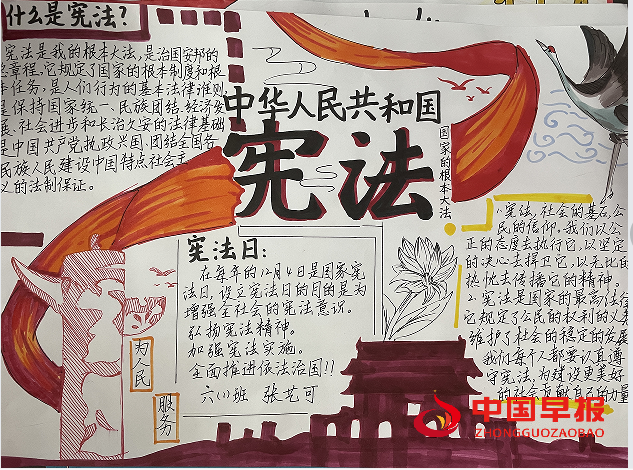 什么是宪法?
宪法是我的根本大法,是治国安邦的
总章程,它规定了国家的根本制度和根
本任务,是人们行为的基本法律准则
是保持国家统一、民族团结、经济发
展、社会进步和长治久安的法律基础
是中国共产党执政兴国、团结全国各
民族人民建设中国特色社会主
义的法制保证。
中华人民共和国
宪法
国家的根本大法
宪法日:
在每年的12月4日是国家宪
法日,设立宪法日的目的是为
增强全社会的宪法意识。
弘扬宪法精神。
加强宪法实施。
全面推进依法治国!!
六(1)班 张艺可
为人民
服务
1.宪法,社会的基石,公
民的信仰,我们以公
正的态度去执行它,以坚定
的决心去捍卫它,以无比的
热忱去传播它的精神。
2.宪法是国家的最高法律
它规定了公民的权利的义务
维护了社会的稳定的发展
我们每个人都要认真遵
守宪法,为建设更美好
的社会贡献自己的力量
中国早报
ZHONGGUOZAOBAO